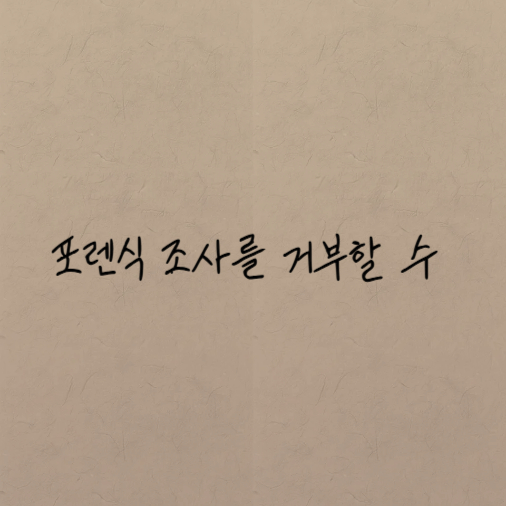 포렌식 조사를 거부할 수